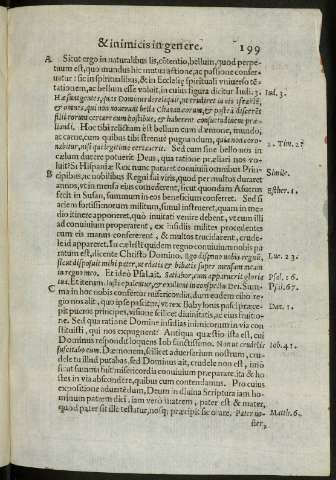 & inimicis in genere. 199
A Sicut ergo in naturalibus lis, cõtentio, bellum, quod perpe-
tuum est, quo mundus hic mutua actione, ac passione conser-
uatur: sic in spiritualibus, & in Ecclesiæ spiritualis vniuerso cõ-
tationem, ac bellum esse voluit, in cuius figura dicitur Iudi. 3. Iud. 3.
Hæ sunt gentes, quas Dominus dereliquit, vt erudiret in eis Israëlẽ,
& omnes, qui non nouerant bella Chananæorum, & postea discerẽt
filij eorum certare cum hostibus, & haberent consuetudinem præ-
liandi. Hoc tibi relictum est bellum cum dæmone, mundo,
ac carne, cum quibus tibi strenuè pugnandum, quia non coro-
nabitur, nisi qui legitime certauerit. Sed cum sine bello nos in 2. Tim. 2.
cælum ducere potuerit Deus, qua ratione præliari nos vo-
luit? Si Hispaniæ Rex nunc pararet conuiuium omnibus Prin- Simile.
B cipibus, ac nobilibus Regni sui viris, quod per multos duraret
annos, vt in mensa eius comederent, sicut quondam Assuerus Esther. 1.
fecit in Susan, summum in eos beneficium conferret. Sed si
aciem fortissimorum militum, simul instrueret, quam in me-
dio itinere apponeret, quò inuitati venire debent, vt cum illi
ad conuiuium properarent, ex insidiis milites procedentes
cum eis manus consererent, & multos trucidarent, crude-
le id appareret. In cælesti quidem regno conuiuium nobis pa-
ratum est, dicente Christo Domino. Ego dispono vobis regnũ, Luc. 22.
sicut disposuit mihi pater, vt edatis & bibatis super mensam meam
in regno meo. Et ideò Psal. ait. Satiabor, cum apparuerit gloria Psal. 16.
tua. Et iterum. Iusti epulentur, & exultent in conspectu Dei. Sum- Psal. 67.
C ma in hoc nobis confertur misericordia, dum eodem cibo re-
gio nos alit, quo ipse pascitur, vt rex Babylonis pueris præce- Dan. 1.
pit pueros principes, visione scilicet diuinitatis, ac eius fruitio-
ne. Sed qua ratione Domine insidias inimicorum in via con-
stituisti, qui nos expugnent? Antiqua quæstio ista est, cui
Dominus respondit loquens Iob sanctissimo. Non vt crudelis Iob. 41.
suscitabo eum. Dæmonem, scilicet aduersarium nostrum, cru-
dele tu illud putabas, sed Dominus ait, crudele non est, imò
sicut summa fuit misericordia conuiuium præparare, ita & ho-
stes in via abscondere, quibus cum contendamus. Pro cuius
expositione aduertẽdum, Deum in diuina Scriptura iam ho-
minum patrem dici: iam vero matrem, pater est & mater,
quod pater sit ille testatur, nosq; præcipit sic orare. Pater no- Matth. 6.
ster,